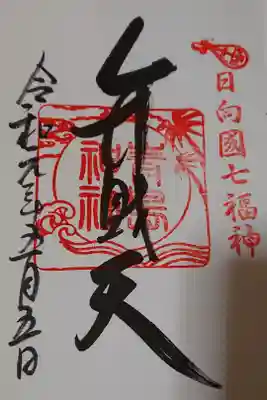 日向國七福神
弁財天
青島
神社
令和元年六月五日